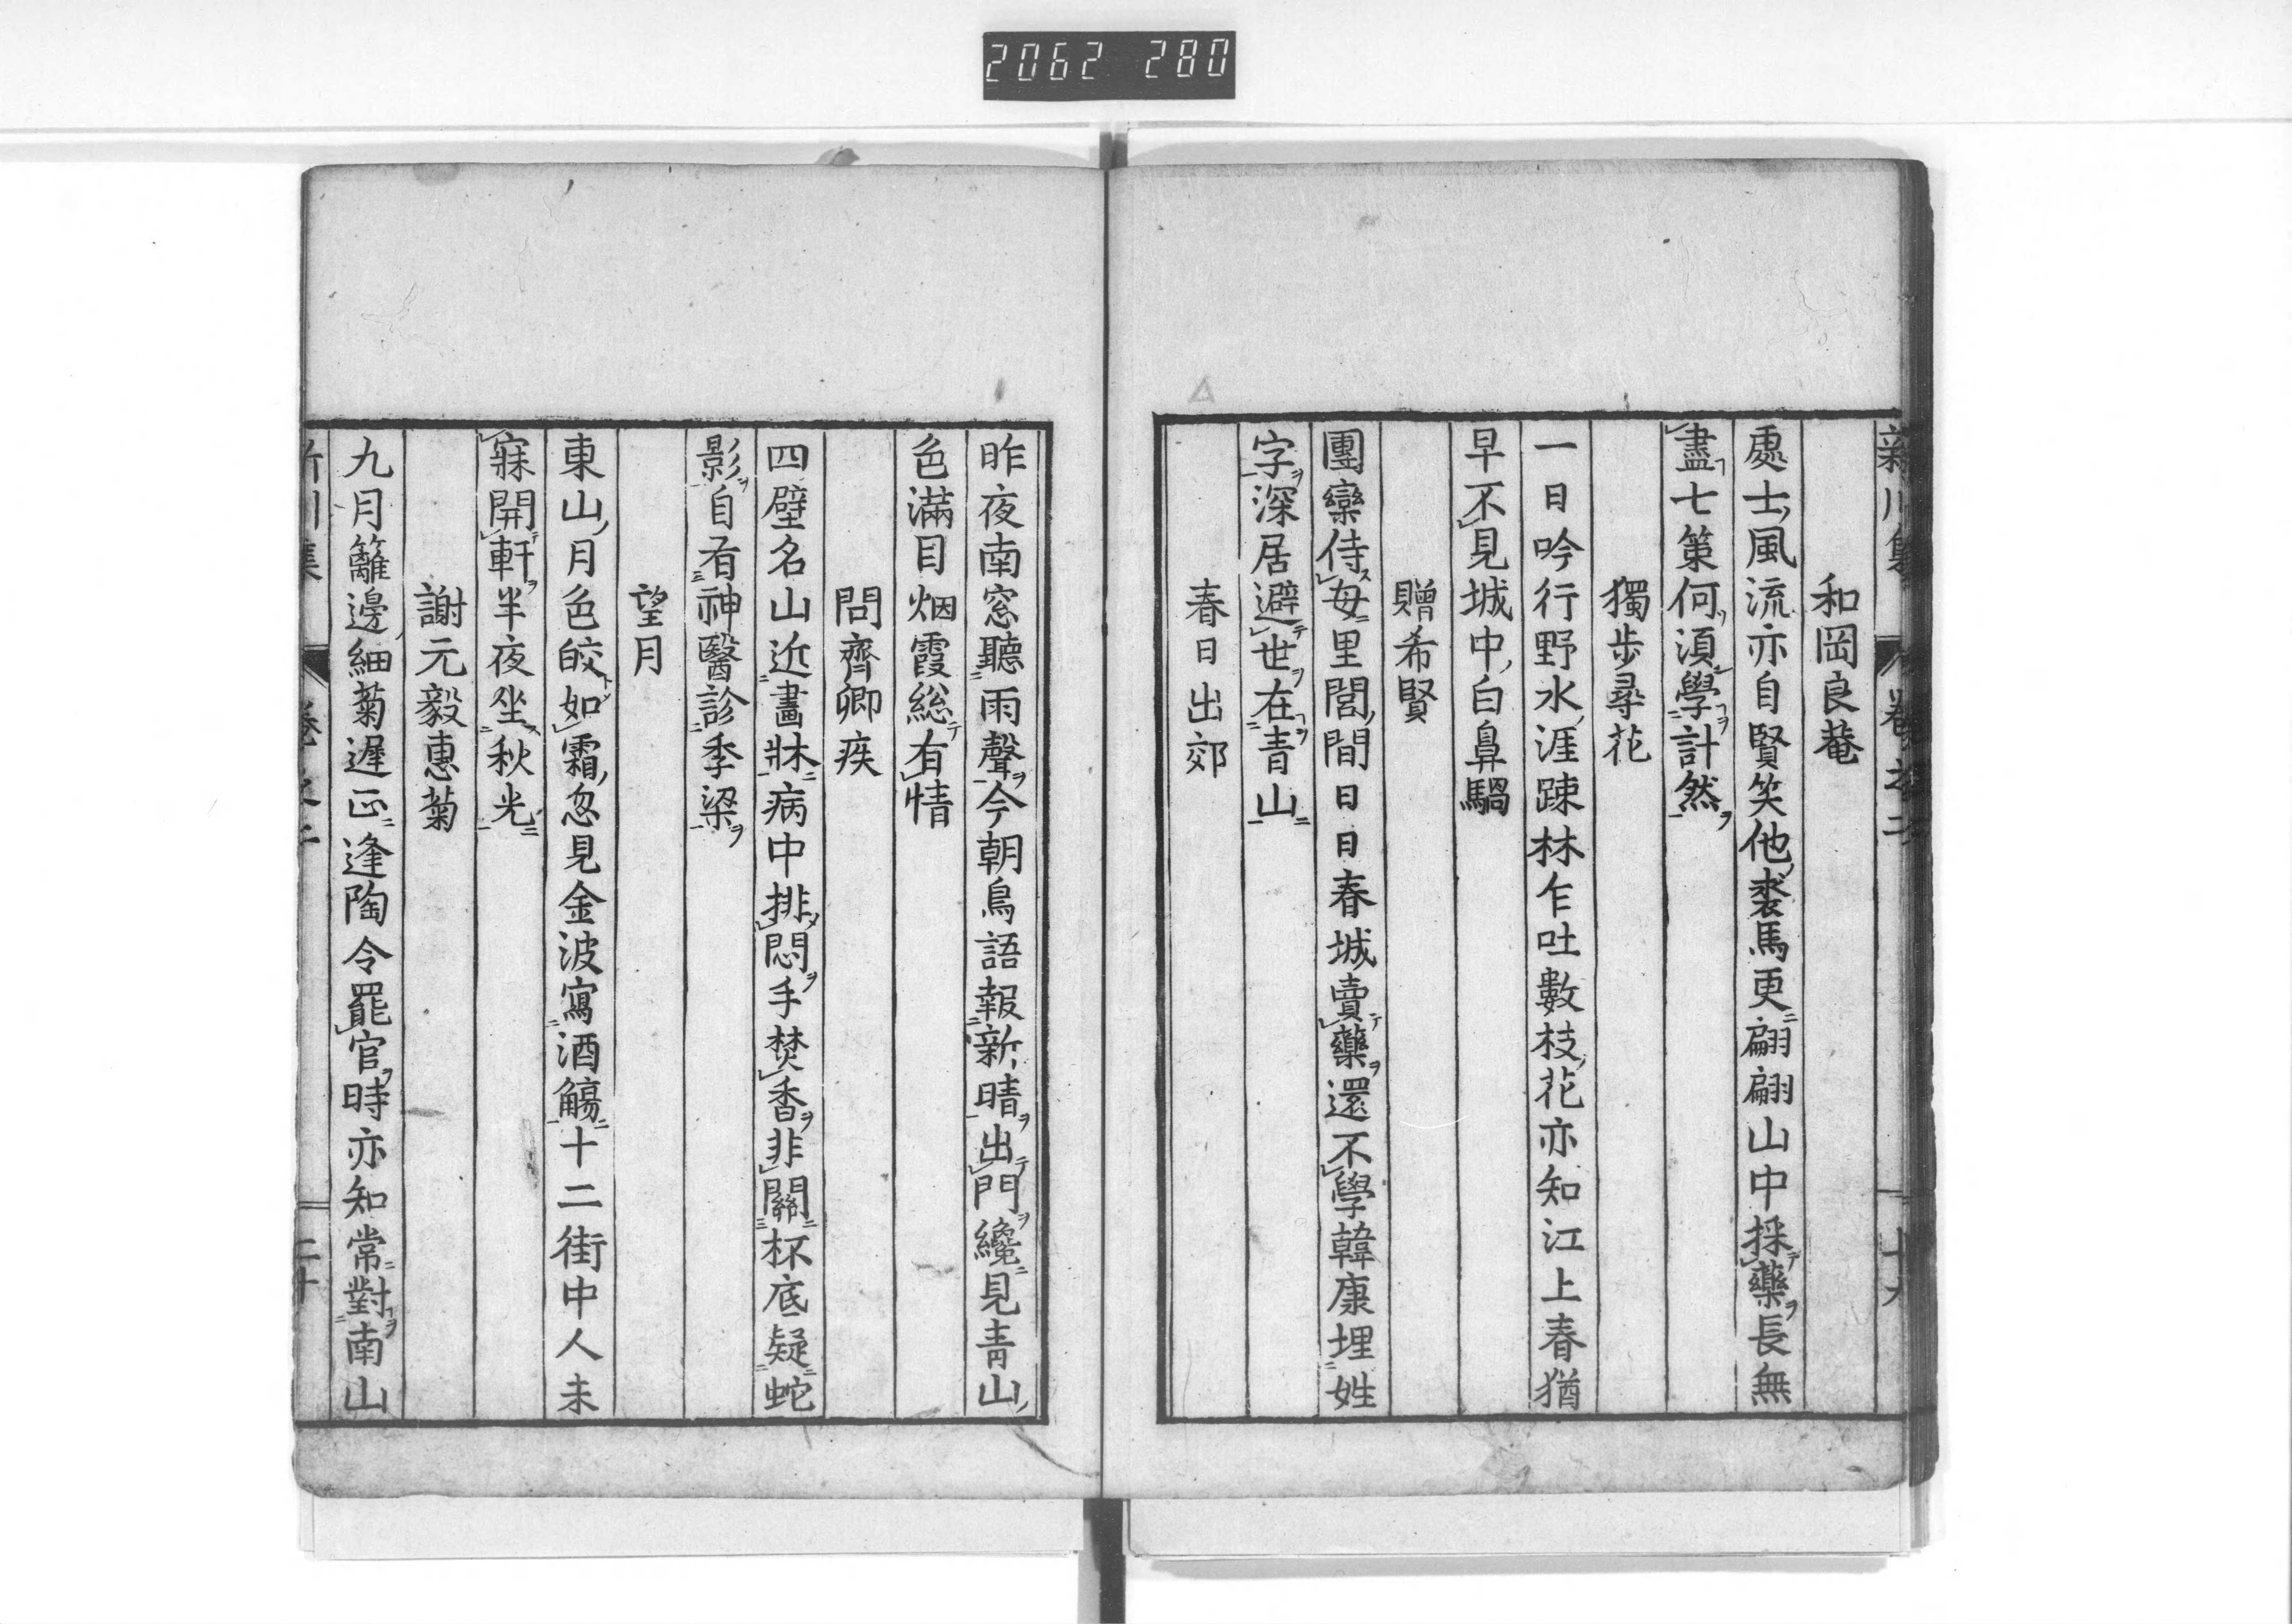 2062 280
和岡良菴
處士風流亦自賢笑他裘馬更翩翩山中採藥長無
盡七策何須學計然
獨步尋花
一日吟行野水涯踈林乍吐數枝花亦知江上春猶
早不見城中白鼻騧
贈希賢
團欒侍母里閭間日日春城賣藥還不學韓康埋姓
字深居避世在青山
春日出郊
昨夜南窓聽雨聲今朝鳥語報新晴出門纔見青山
色滿目烟霞総有情
問齊卿疾
四壁名山近畫牀病中排悶手焚香非關杯底疑蛇
影自有神醫診季梁
望月
東山月色皎如霜忽見金波寫酒觴十二街中人未
寐開軒半夜坐秋光
謝元毅惠菊
九月籬邊細菊遲正逢陶令罷官時亦知常對南山